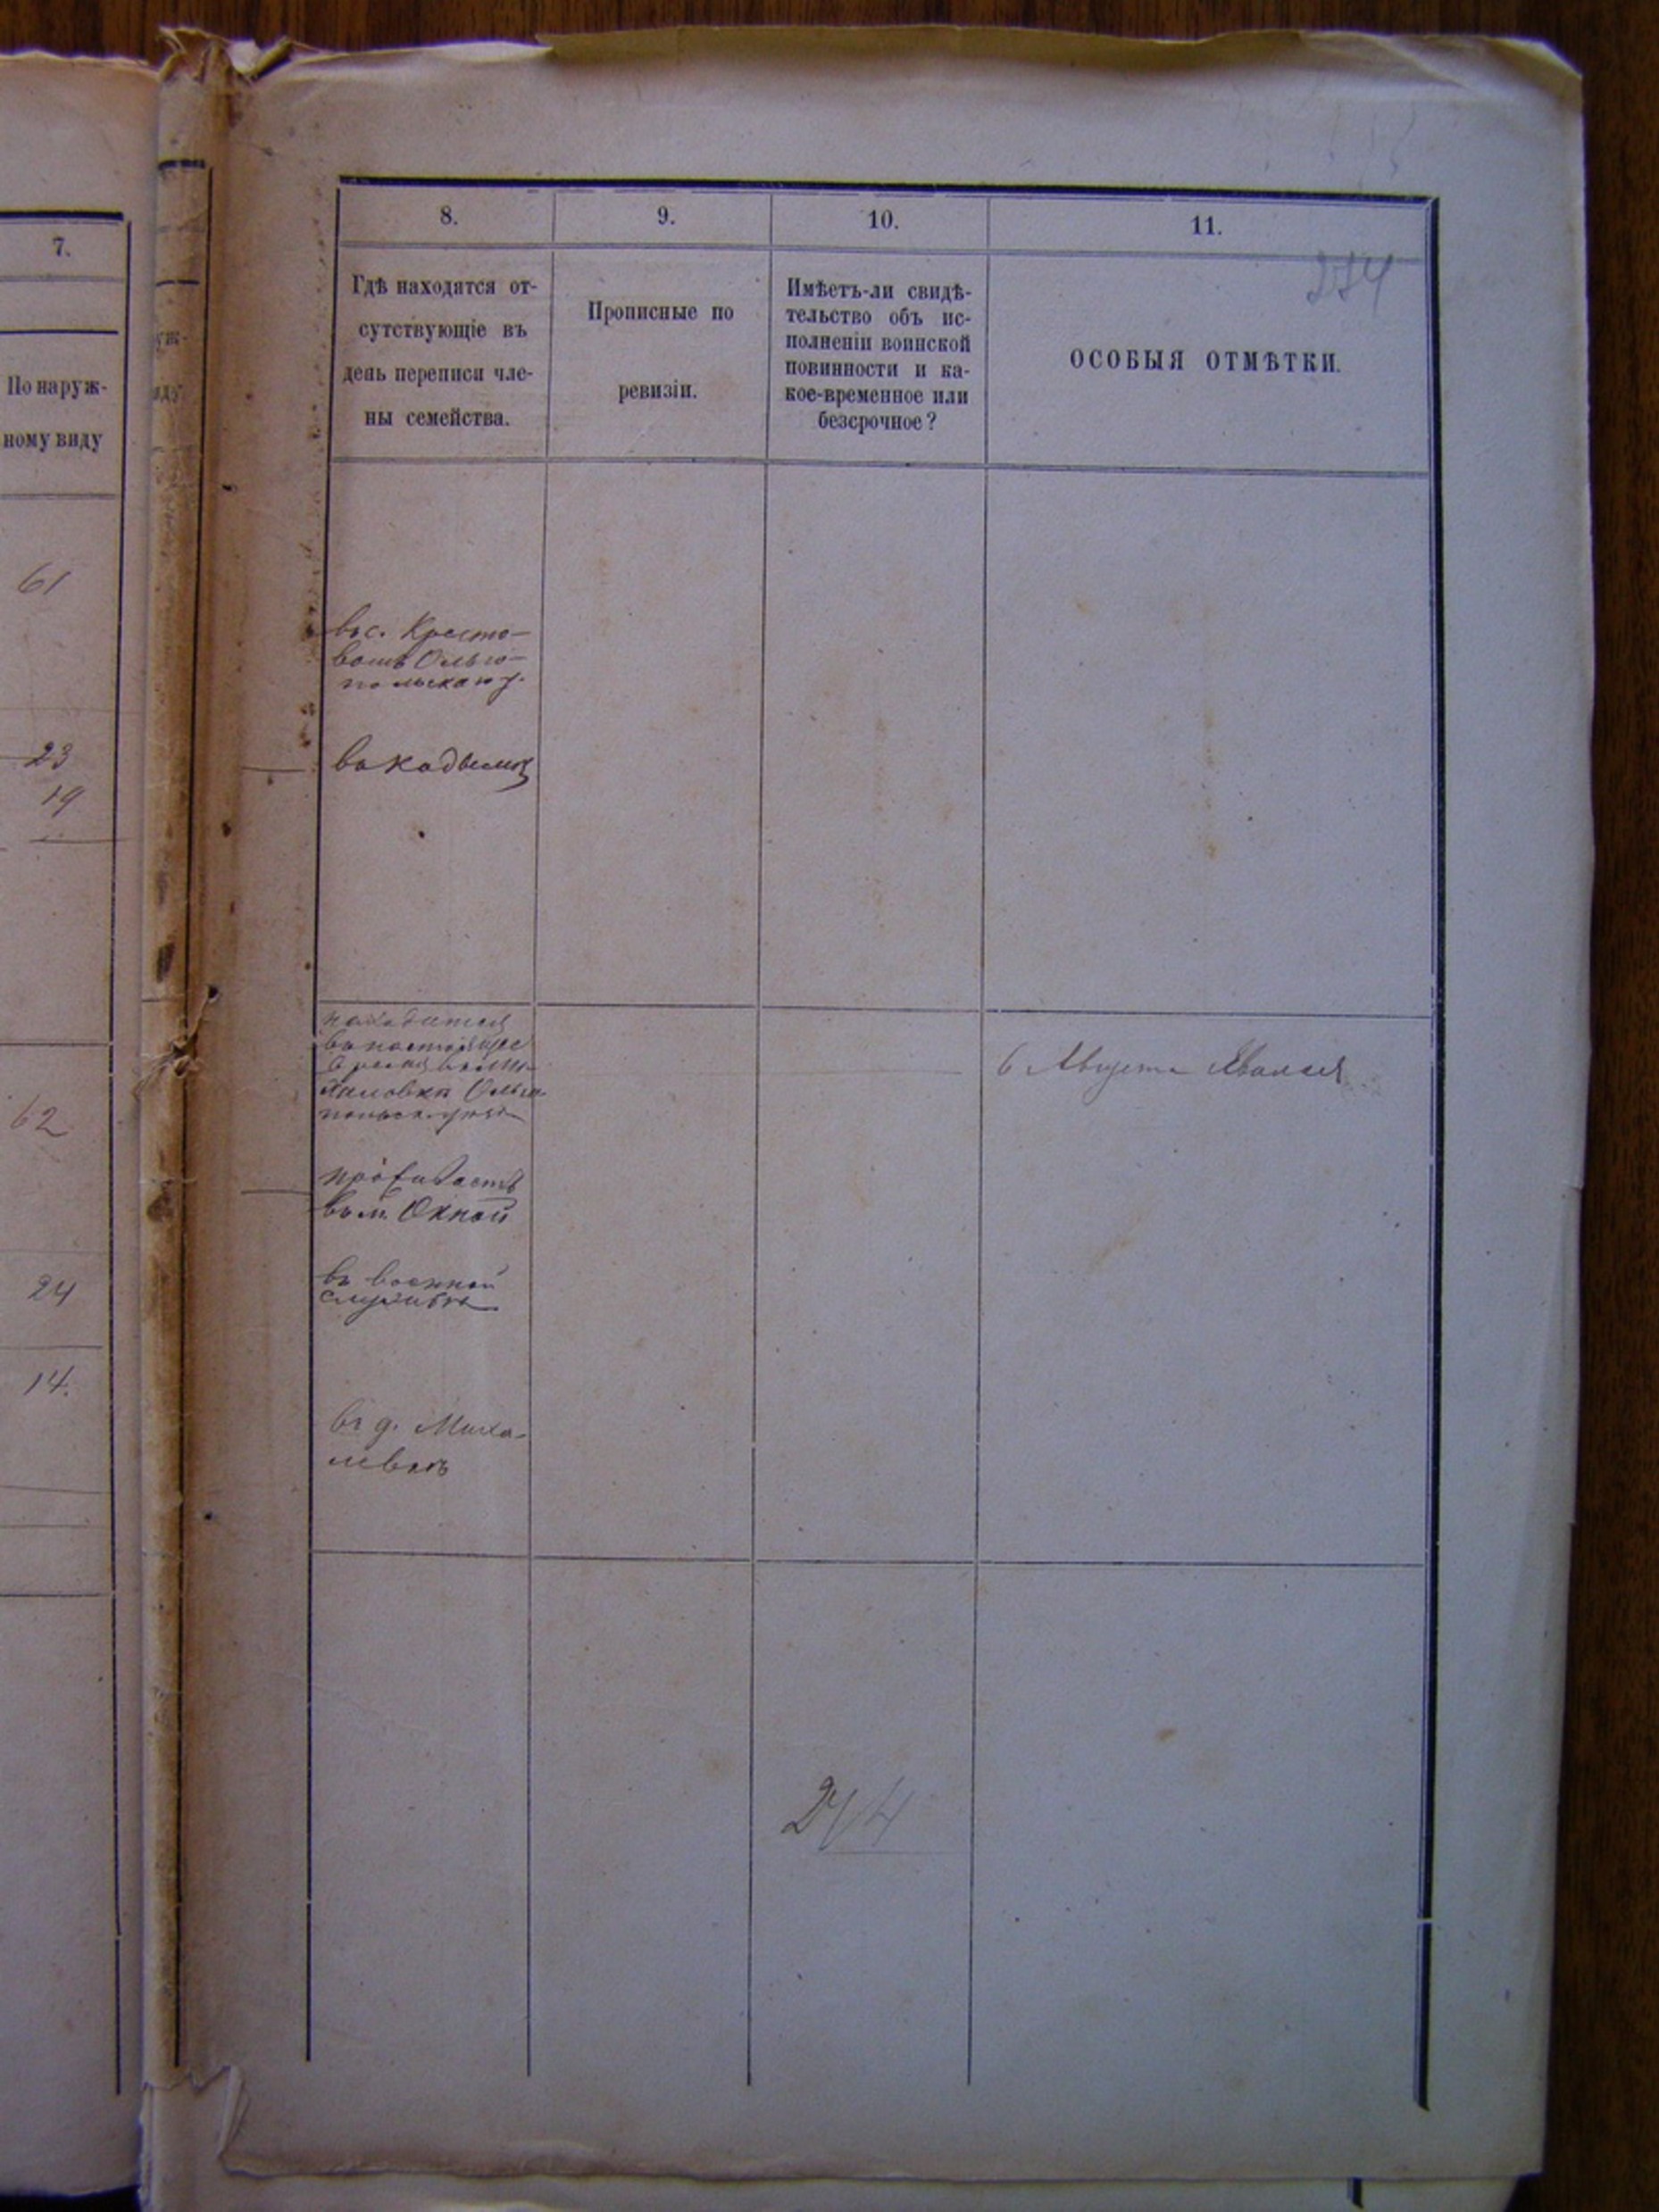 7.
По наруж-
ному виду
61
23
19
62
24
14.
8.
9.
10.
11.
274
Гдѣ находятся от-
сутствующіе въ
день переписи чле-
ны семейства.
Прописные по
ревизіи.
Имѣетъ-ли свидѣ-
тельство объ ис-
полненіи воинской
повинности и ка-
кое-временное или
безсрочное?
ОСОБЫЯ ОТМѢТКИ.
въ с. Кресто-
Ольго-
польскаго у.
въ Кодымѣ
находится
въ настоящее
время въ
Ольго-
6 Августа
проживаетъ
въ м. Окной
въ военной
службѣ
въ д. Миха-
левкѣ
274